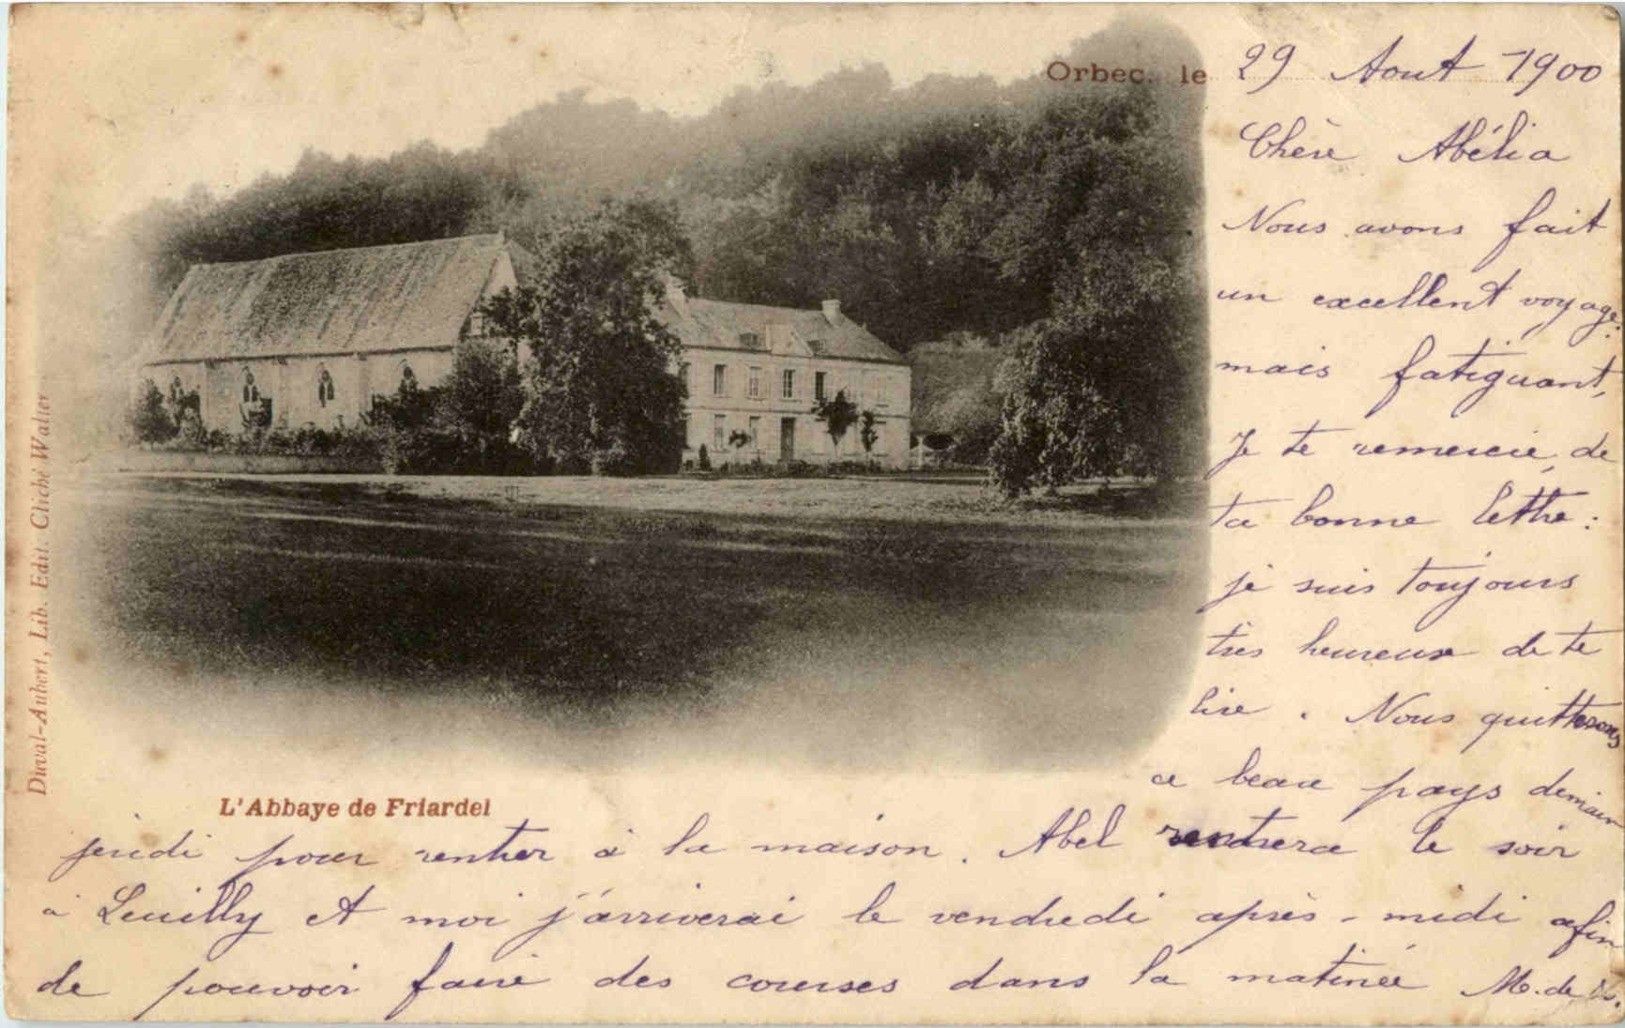 Orbec. le 29 Aout 1900
Chère Abélia
Nous avons fait
un excellent voyage.
mais fatiguant,
Je te remercie de
ta bonne lettre :
je suis toujours
très heureux de te
lire . Nous quitterons
ce beau pays demain
jeudi pour rentrer à la maison. Abel rentrera le soir
à Leuilly et moi j'arriverai le vendredi après-midi afin
de pouvoir faire des courses dans la matinée M. de
L'Abbaye de Friardel
Duval-Aubert, Lib. Edit. Cliché Walter